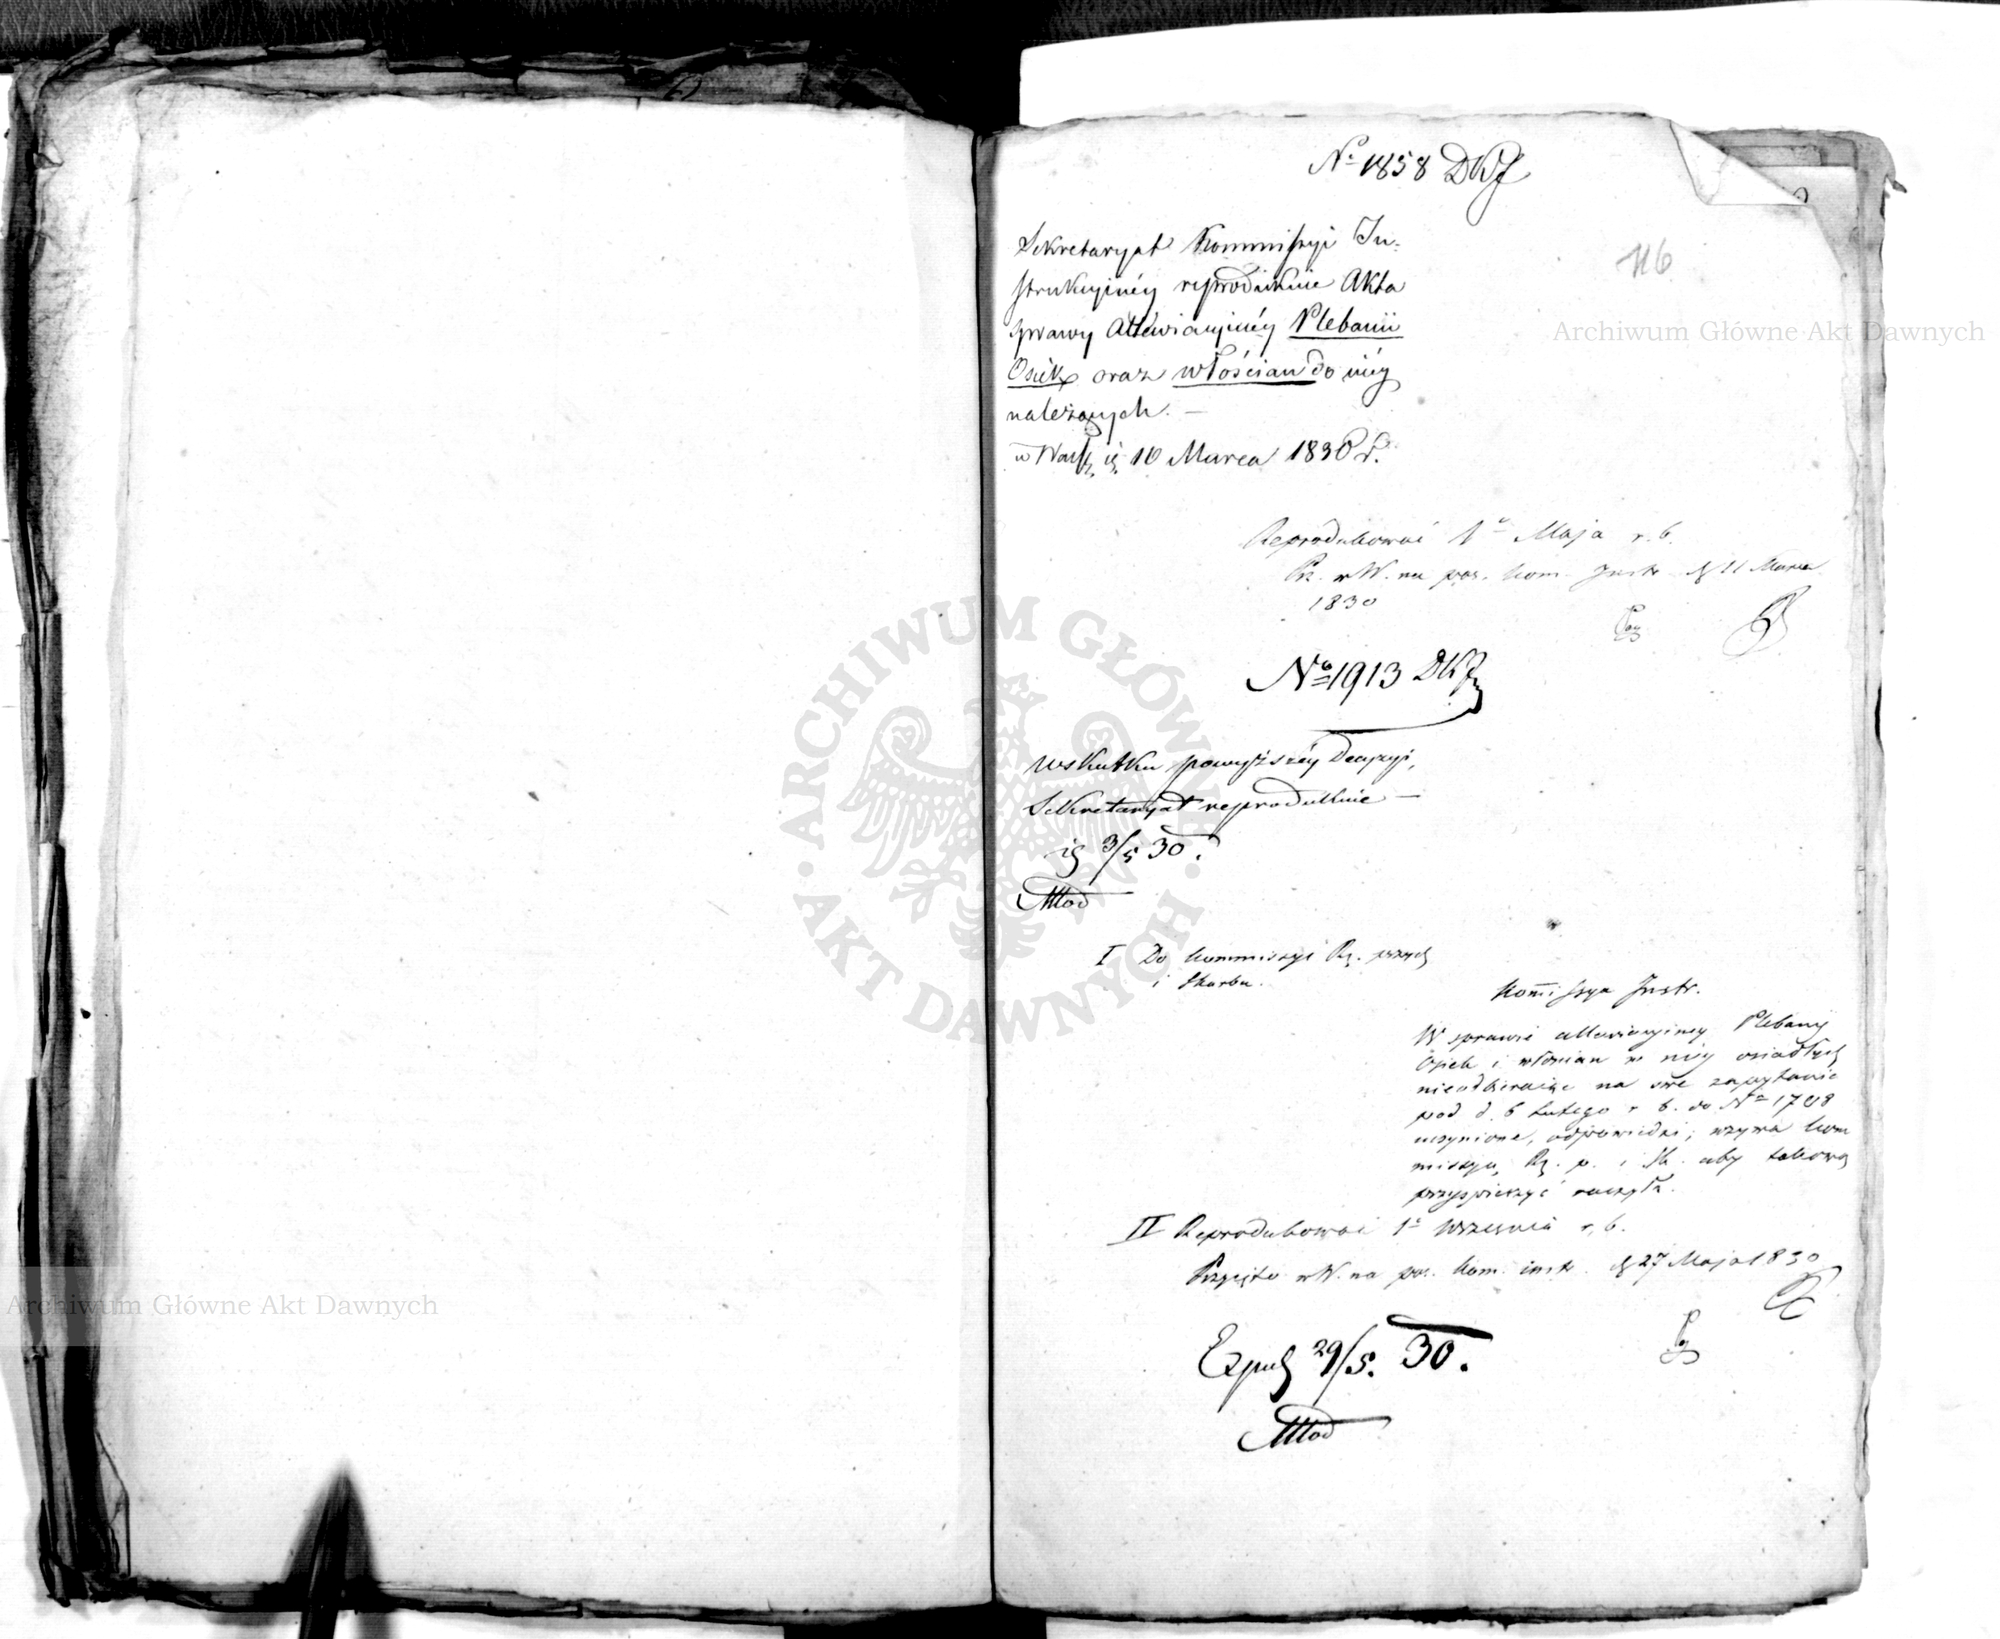 Nº 1858 DKJ
116
Sekretaryat Kommissyi In-
strukcyinéy reprodukuie Akta
sprawy Allewiacyinéy Plebanii
Osiek oraz włościan do niéy
należących. —
w Warsz. 10 Marca 1830 r.
Reprodukować 1º Maja r. b.
w W. na pos. Kom. Instr. d. 11 Marca
1830
Nº 1913 DKJ
wskutku powyższéy Decyzyi,
Sekretaryat reprodukuie —
3/5 30.
Młod
I Do Kommissyi Rz. przych
i Skarbu.
Kommissya Instr.
W sprawie allewiacyiney Plebany
Osiek i włościan w niéy osiadłych
nieodbieraiąc na swe zapytanie
pod d. 6 Lutego r. b. do Nº 1798
uczynione, odpowiedzi; wzywa Kom
missyą Rz. p. i Sk. aby takową
przyspieszyć raczyła.
II Reprodukować 1º Września r. b.
Przyjęto w W. na pos. Kom. instr. d. 27 Maja 1830
Exped 29/5. 30.
Młod
Archiwum Główne Akt Dawnych
Archiwum Główne Akt Dawnych
ARCHIWUM GŁÓWNE
AKT DAWNYCH